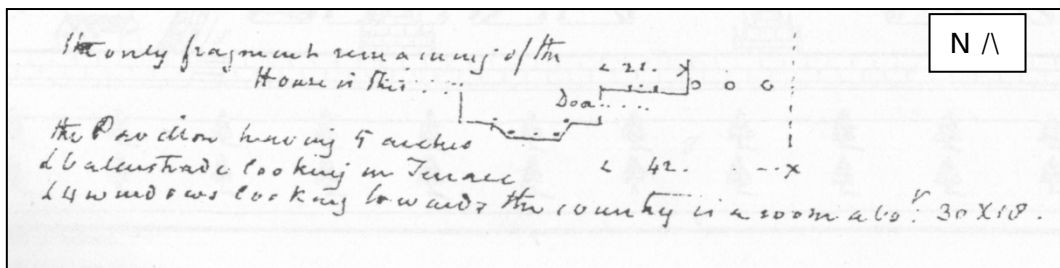 N /\
The only fragment remaining of the
House is this
< 21. X
Doo
the Pavilion having 5 arches
< 42. X
& balustrade looking on Terrace
& 4 windows looking towards the country is a room abo.t 30 X 18.